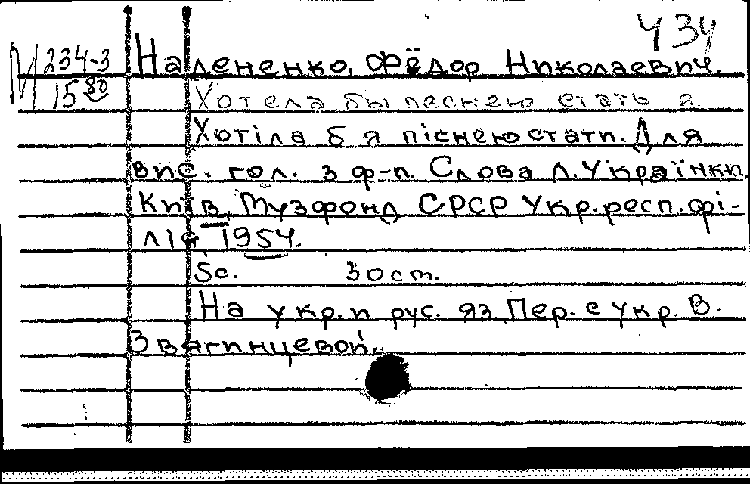 434
М 234-3
15 80
Налененко, Фёдор Николаевич.
Хотела бы песнею стать я
Хотіла б я піснею стати. Для
вис. гол. з ф-п. Слова Л. Українки.
Київ, Музфонд СРСР Укр. респ. фі-
лія, 1954.
5с. 30 cm.
На укр. и рус. яз. Пер. с укр. В.
Звягинцевой.